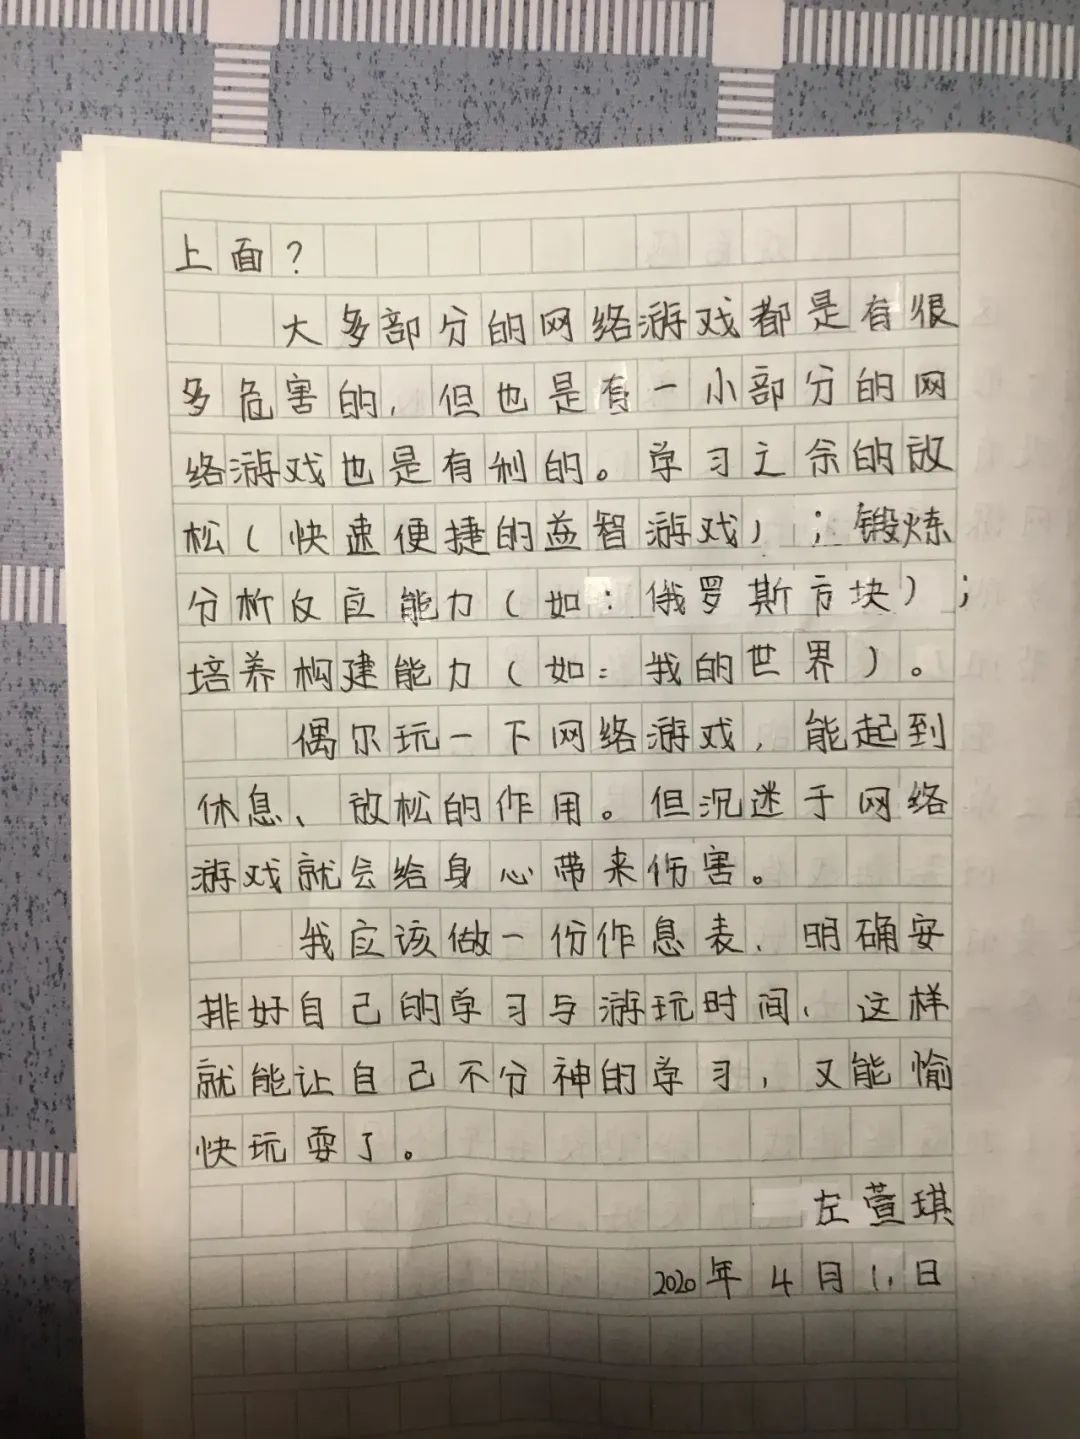 上面？
大多部分的网络游戏都是有很
多危害的，但也是有一小部分的网
络游戏也是有利的。学习之余的放
松（快速便捷的益智游戏）；锻炼
分析反应能力（如：俄罗斯方块）；
培养构建能力（如：我的世界）。
偶尔玩一下网络游戏，能起到
休息、放松的作用。但沉迷于网络
游戏就会给身心带来伤害。
我应该做一份作息表，明确安
排好自己的学习与游玩时间，这样
就能让自己不分神的学习，又能愉
快玩耍了。
左萱琪
2020年4月11日